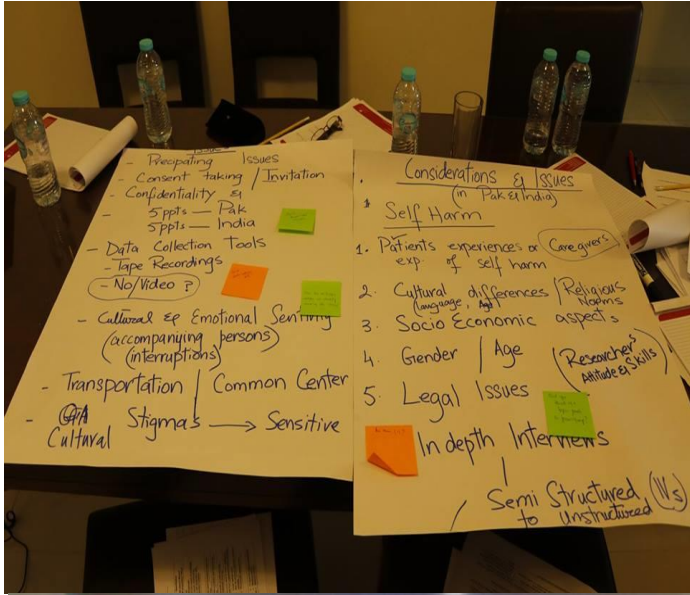 - Precipating Issues
- Consent taking / Invitation
- Confidentiality &
- 5ppts — Pak
5ppts — India
- Data Collection Tools
- Tape Recordings
- No/Video ?
- Cultural & Emotional
(accompanying persons)
(interruptions)
- Transportation / Common Center
- Cultural Stigmas → Sensitive
Considerations & Issues
(in Pak & India)
Self Harm
1. Patients experiences or Care givers
exp. of self harm
2. Cultural differences / Religious Norms
(language, Age)
3. Socio Economic aspects
4. Gender / Age
(Researcher's
Attitude & Skills)
5. Legal Issues
In depth Interviews
Semi Structured (IVs)
to Unstructured